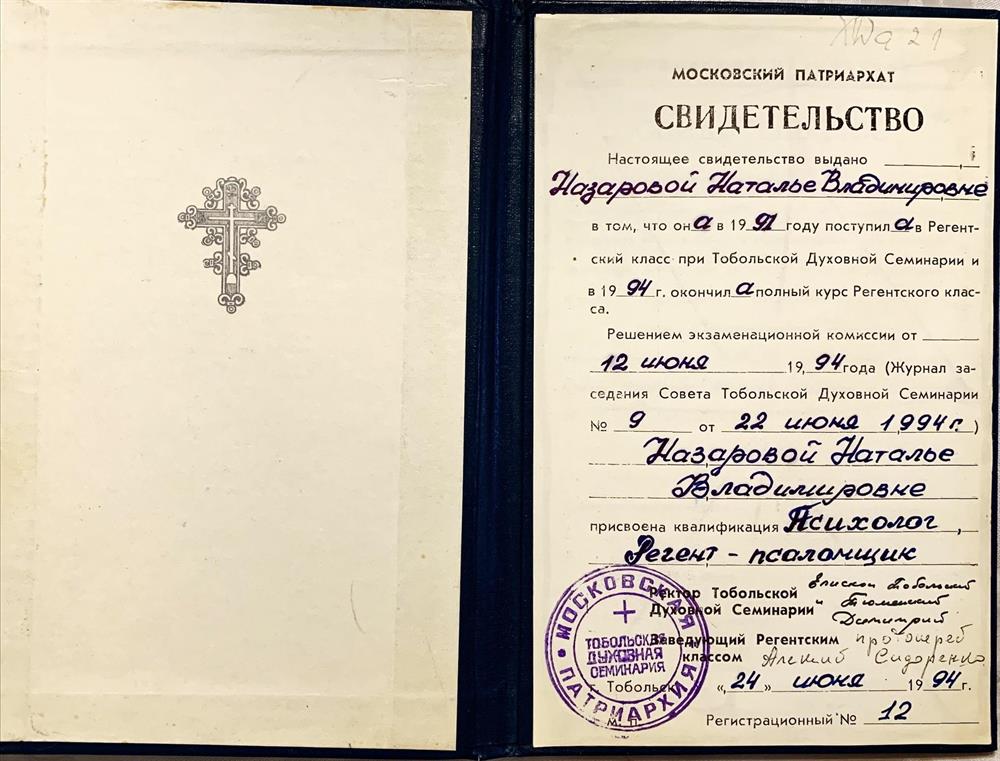 21
МОСКОВСКИЙ ПАТРИАРХАТ
СВИДЕТЕЛЬСТВО
Настоящее свидетельство выдано
Назаровой Наталье Владимировне
в том, что она в 1991 году поступила в Регент-
ский класс при Тобольской Духовной Семинарии и
в 1994 г. окончила полный курс Регентского клас-
са.
Решением экзаменационной комиссии от
12 июня 19,94 года (Журнал за-
седания Совета Тобольской Духовной Семинарии
№ 9 от 22 июня 1994 г.)
Назаровой Наталье
Владимировне
присвоена квалификация Псиxолог,
Регент - псаломщик
Ректор Тобольской Епископ Тобольский
Духовной Семинарии и Тюменский
Димитрий
Заведующий Регентским протоиерей
классом Алексий Сидоренко
г. Тобольск „24" июня 1994 г.
М. П.
Регистрационный № 12
МОСКОВСКАЯ ПАТРИАРХИЯ
ТОБОЛЬСКАЯ
ДУХОВНАЯ
СЕМИНАРИЯ